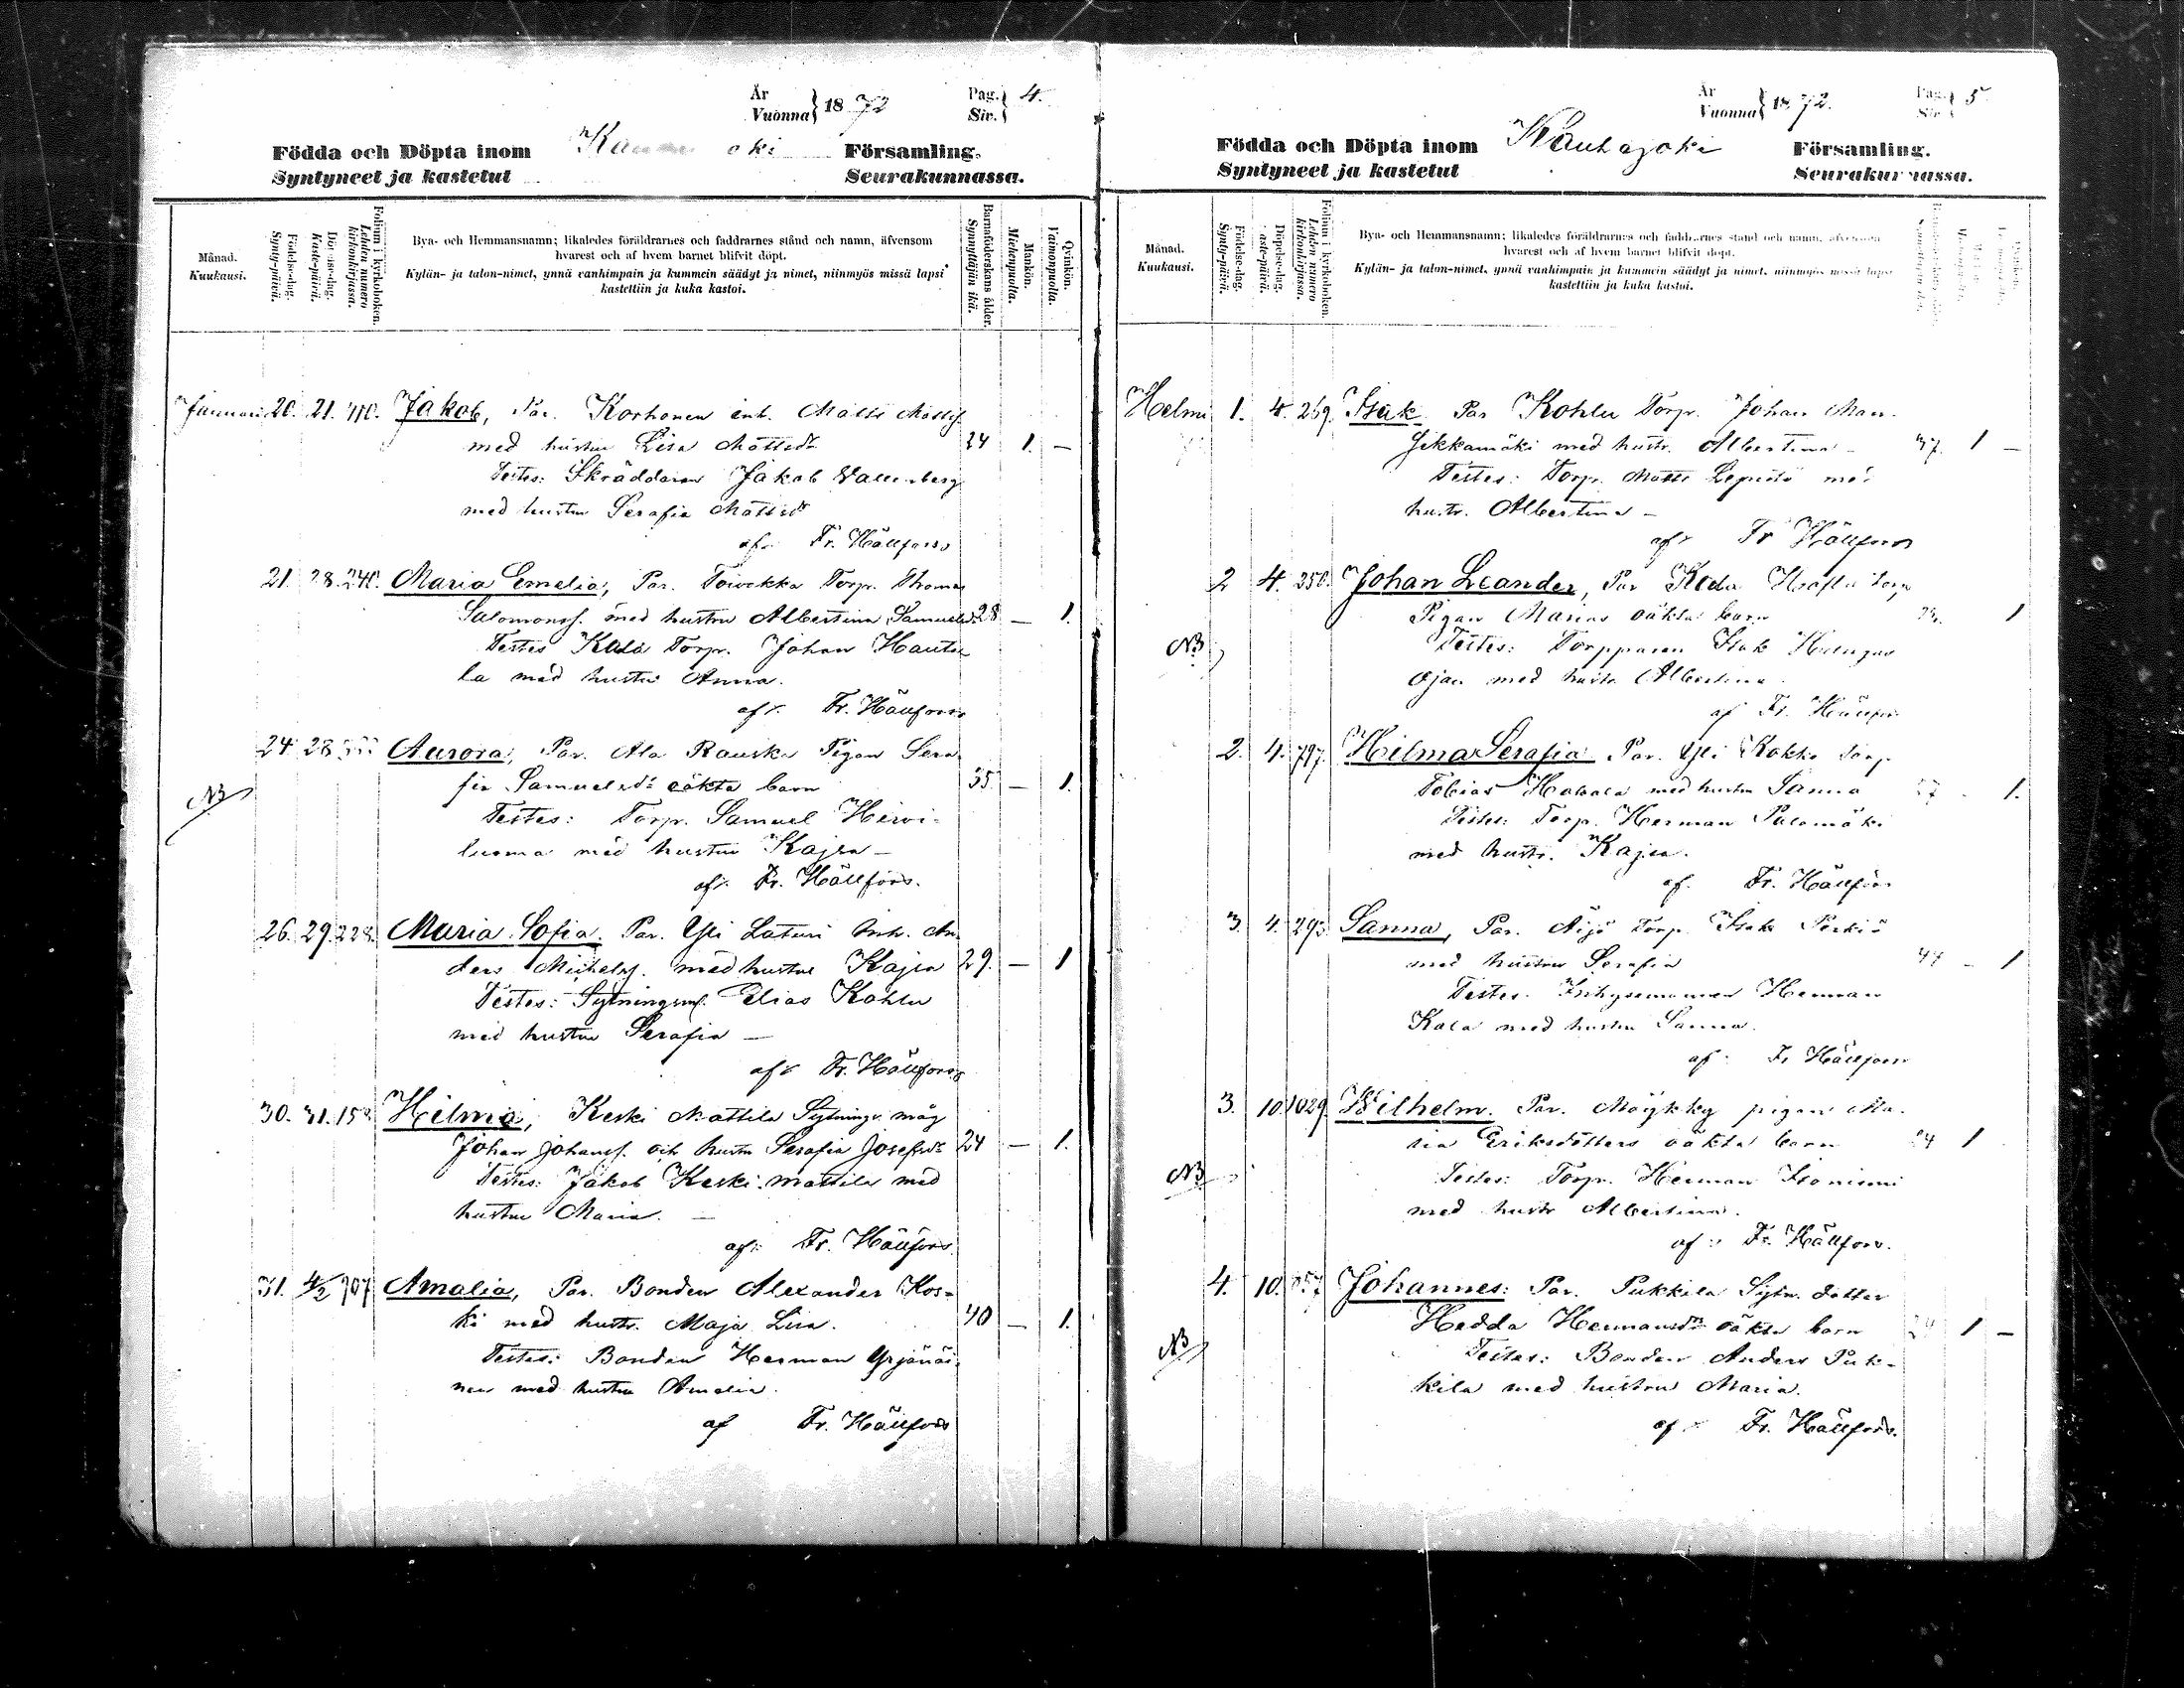 År
Vuonna} 1872 Pag.
Siv.} 4.
Födda och Döpta inom Församling.
Syntyneet ja kastetut Seurakunnassa.
Månad.
Kuukausi.
Födelse-dag.
Synty-päivä.
Döpelse-dag.
Kaste-päivä.
Folium i kyrkoboken.
Lehden numero kirkonkirjassa.
Bya- och Hemmansnamn; likaledes föräldrarnes och faddrarnes stånd och namn, äfvensom
hvarest och af hvem barnet blifvit döpt.
Kylän- ja talon-nimet, ynnä vanhimpain ja kummein säädyt ja nimet, niinmyös missä lapsi
kastettiin ja kuka kastoi.
Barnaföderskans ålder.
Synnyttäjän ikä.
Mankön.
Miehenpuolta.
Qvinkön.
Vaimonpuolta.
Januari 20. 21. Jakob, Par. Korhonen inh. Matts Mattss.
med hustru Lisa Mattsdr 24 1. —
Testes: Skräddaren Jakob Vallenberg
med hustru Serafia Mattsdr
af: Fr. Hällfors
21. 28. 240. Maria Emelia, Par. Toivokka Torp. Thomas
Salomonss. med hustru Albertina Samuelsdr 28 — 1.
Testes Kala Torp. Johan Hauta
la med hustru Anna.
af: Fr. Hällfors
24 28 Aurora, Par. Ala Rauska Pigan Sera
fia Samuelsdr oäkta barn 35 — 1.
NB
Testes: Torp. Samuel Hirvi-
luoma med hustru Kajsa —
af: Fr. Hällfors.
26. 29. 228. Maria Sofia. Par. Yli Laturi Inh. An
ders Michelss. med hustru Kajsa 29. — 1
Testes: Sytningsm. Elias Kohlu
med hustru Serafia —
af: Fr. Hällfors
30. 31. 152 Hilma, Keski Mattila Sytnings måg
Johan Johanss. och hustru Serafia Josefsdr 24 — 1.
Testes: Jakob Keski-mattila med
hustru Maria. —
af: Fr. Hällfors.
31. 4/2 707 Amalia, Par. Bonden Alexander Kos-
ki med hustr. Maja Lisa. 40 — 1.
Testes: Bonden Herman Yrjänäi-
nen med hustru Amalia.
af Fr. Hällfors
År
Vuonna} 1872. Pag.
Siv.} 5.
Födda och Döpta inom Kauhajoki Församling.
Syntyneet ja kastetut Seurakunnassa.
Månad.
Kuukausi.
Födelse-dag.
Synty-päivä.
Döpelse-dag.
Kaste-päivä.
Folium i kyrkoboken.
Lehden numero kirkonkirjassa.
Bya- och Hemmansnamn; likaledes föräldrarnes och faddrarnes stånd och namn, äfvensom
hvarest och af hvem barnet blifvit döpt.
Kylän- ja talon-nimet, ynnä vanhimpain ja kummein säädyt ja nimet, niinmyös missä lapsi
kastettiin ja kuka kastoi.
Helmi 1. 4. 269. Isak. Par Kohlu Torp. Johan Man-
Jikkamäki med hustr. Albertina — 37. 1 —
Testes: Torp. Matts Lepistö med
hustr. Albertina —
af: Fr Hällfors
2 4. 250. Johan Leander, Par Keda Torp
Pigan Marias oäkta barn 1
NB
Testes: Torpparen Isak
ojan med hustr Albertina.
af Fr. Hällfors
2. 4. 797. Hilma Serafia. Par. Yli Kokko Torp.
Tobias med hustru Sanna 27 - 1.
Testes: Torp. Herman Palomäki
med hustr. Kajsa.
af. Fr. Hällfors
3. 4. 293 Sanna, Par. Äijö Torp. Isak Perkiö
med hustru Serafia 44 - 1
Testes: Inhysemannen Herman
Kala med hustru Sanna.
af: Fr Hällfors
3. 10. 1029. Wilhelm. Par. Möykky pigan Ma-
ria Eriksdotters oäkta barn 24 1
NB
Testes: Torp. Herman Isoniemi
med hustr Albertina.
af: Fr. Hällfors.
4. 10. Johannes: Par. Pukkila Sytn. dotter
Hedda Hermansdr oäkta barn 24 1 —
NB
Testes: Bonden Anders Puk-
kila med hustru Maria.
af Fr. Hällfors.